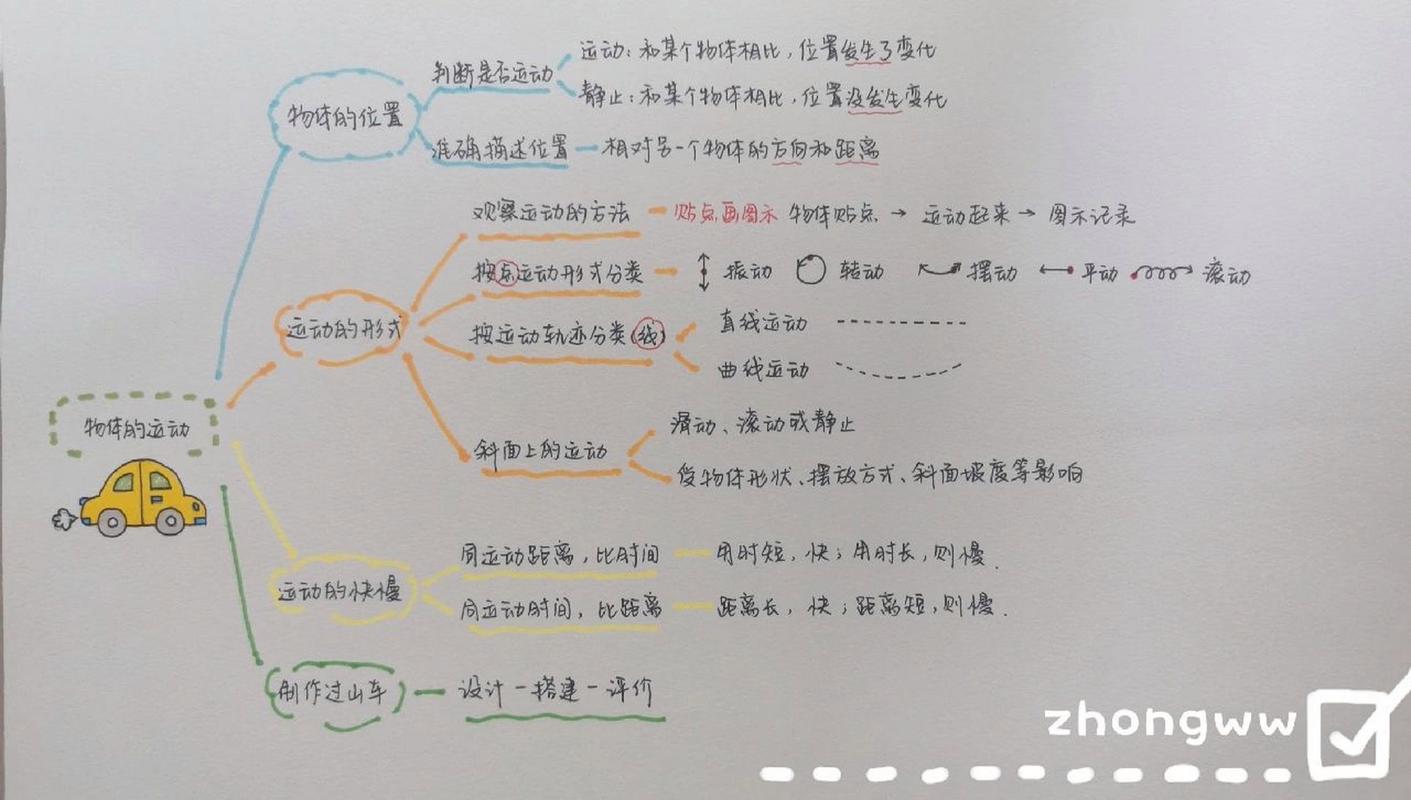 物体的运动
物体的位置
判断是否运动
运动：和某个物体相比，位置发生了变化
静止：和某个物体相比，位置没发生变化
准确描述位置
相对另一个物体的方向和距离
运动的形式
观察运动的方法
贴点画图示 物体贴点 → 运动起来 → 图示记录
按点运动形式分类
振动 转动 摆动 平动 滚动
按运动轨迹分类(线)
直线运动
曲线运动
斜面上的运动
滑动、滚动或静止
受物体形状、摆放方式、斜面坡度等影响
运动的快慢
同运动距离，比时间
用时短，快；用时长，则慢.
同运动时间，比距离
距离长，快；距离短，则慢.
制作过山车
设计-搭建-评价
zhongww